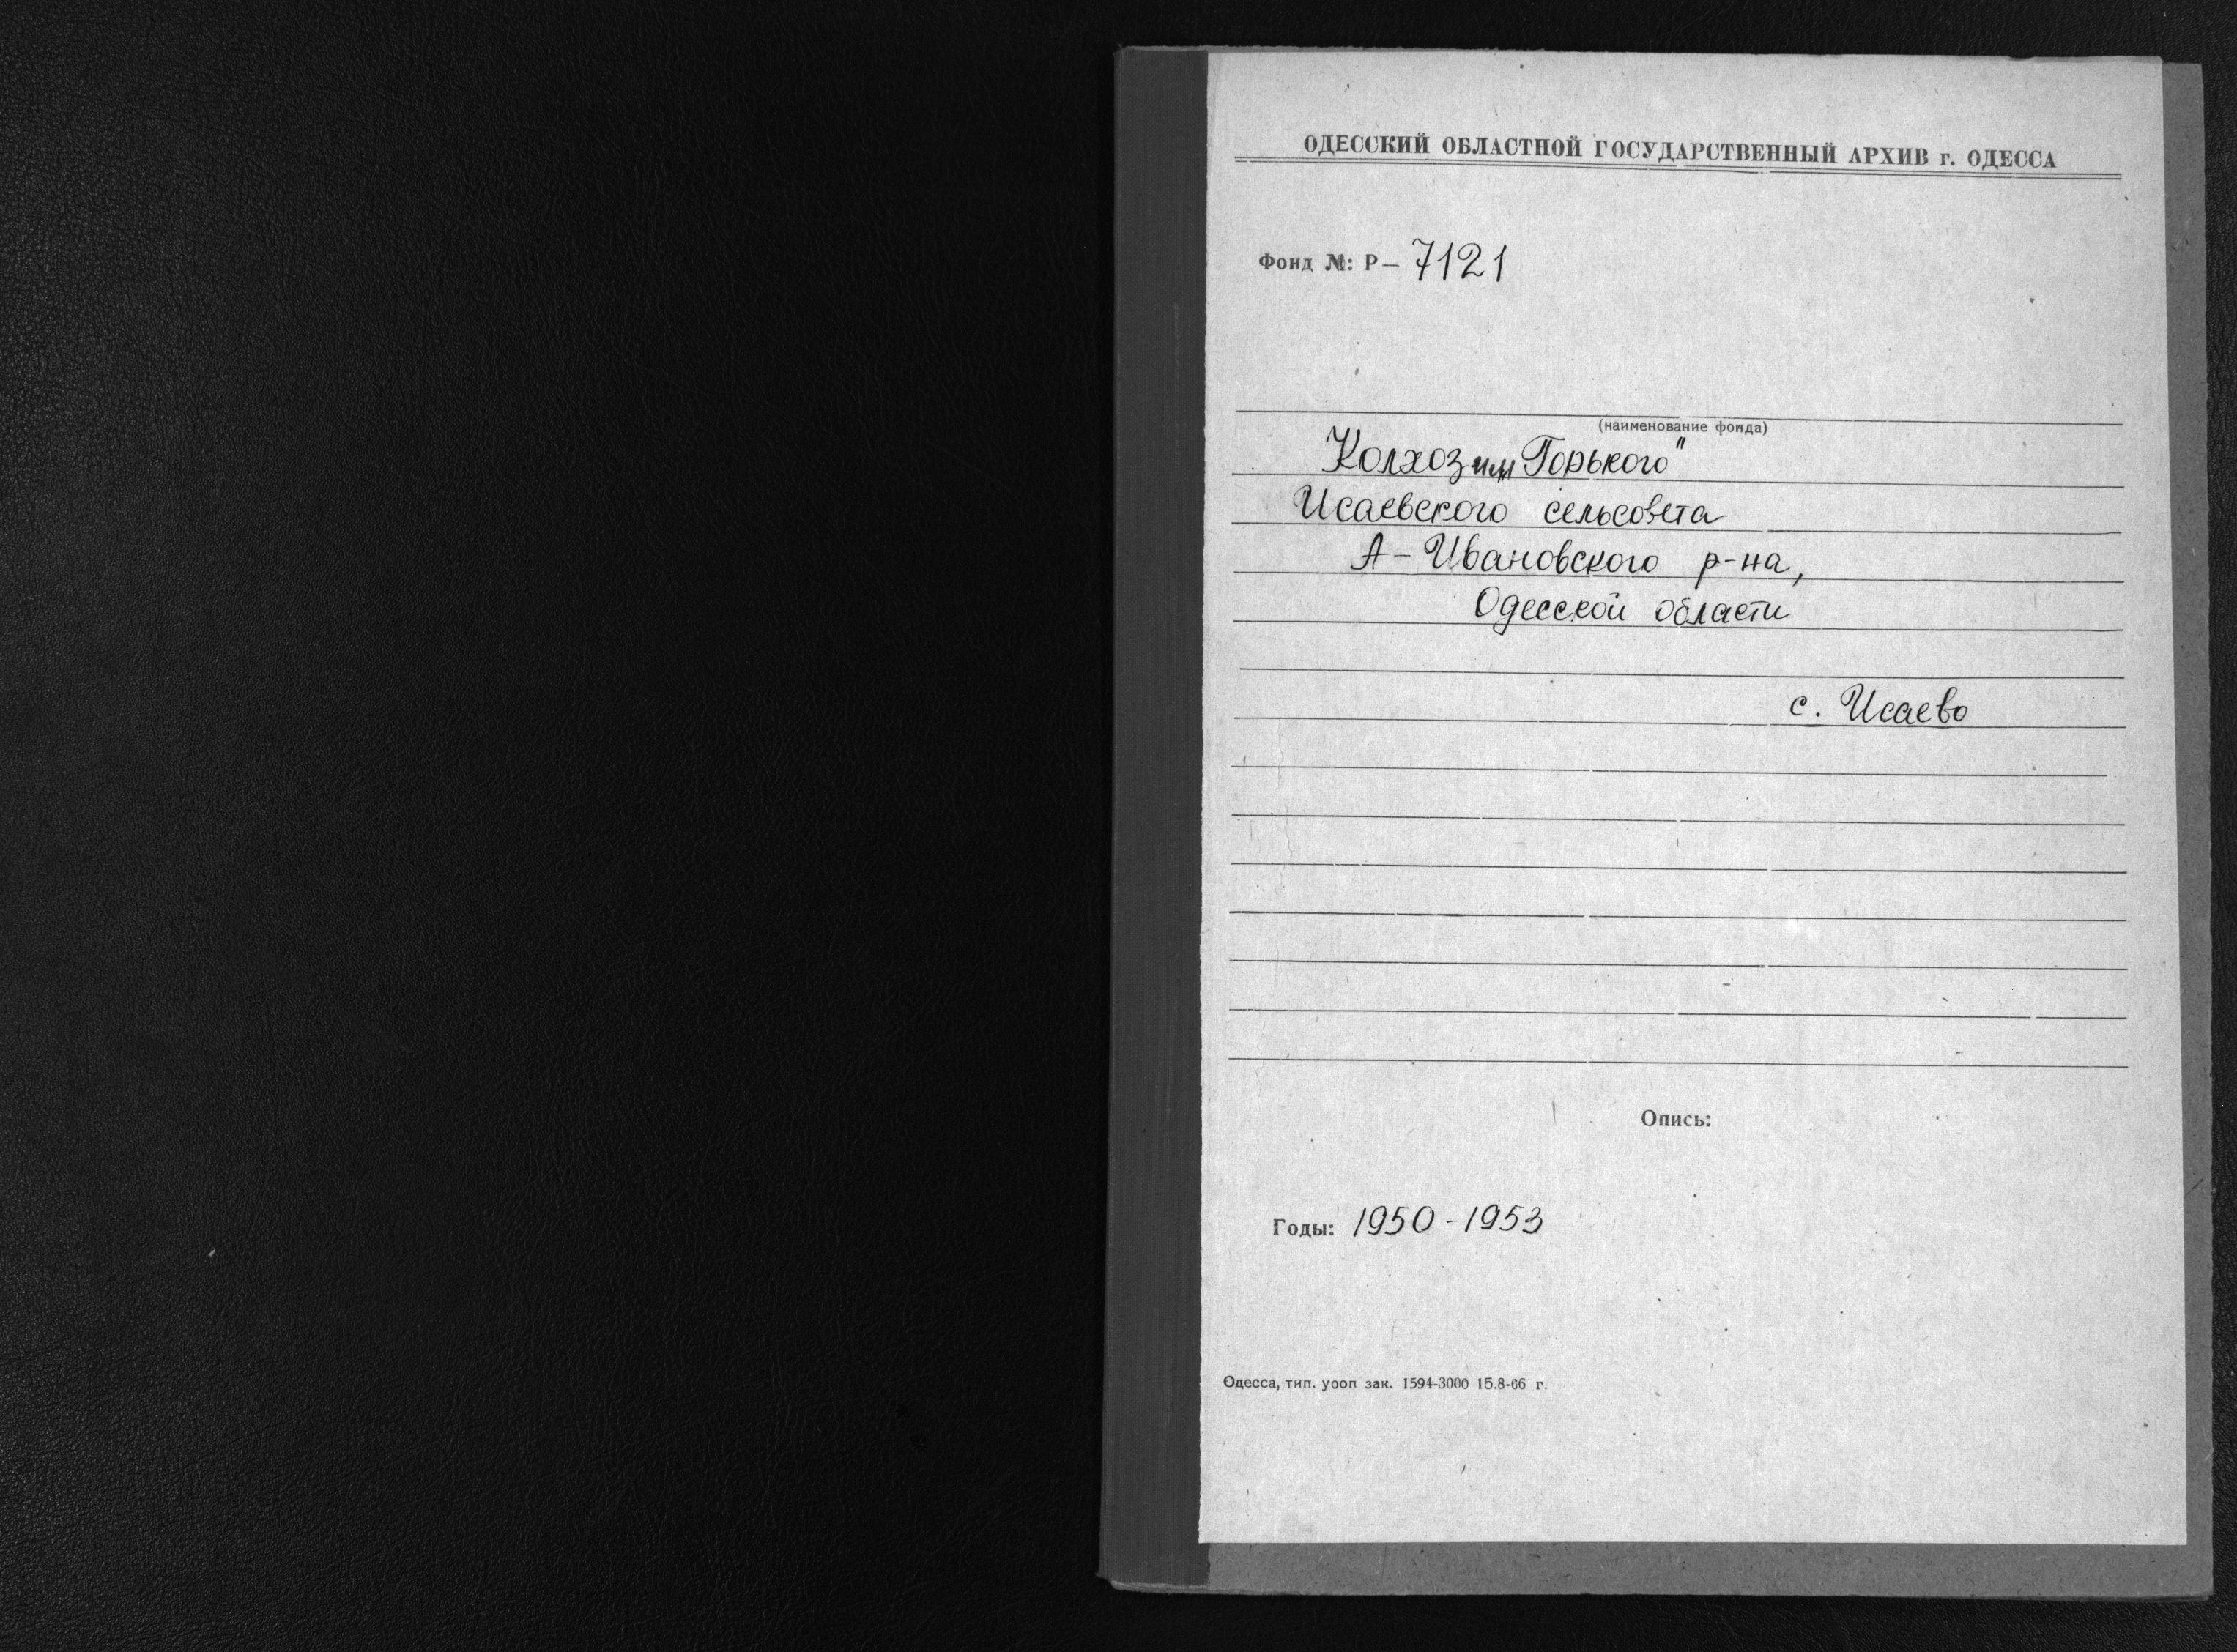 ОДЕССКИЙ ОБЛАСТНОЙ ГОСУДАРСТВЕННЫЙ АРХИВ г. ОДЕССА
Фонд №: Р— 7121
(наименование фонда)
Колхоз им „Горького"
Исаевского сельсовета
А-Ивановского р-на,
Одесской области
с. Исаево
Опись:
Годы: 1950-1953
Одесса, тип. уооп зак. 1594-3000 15.8-66 г.